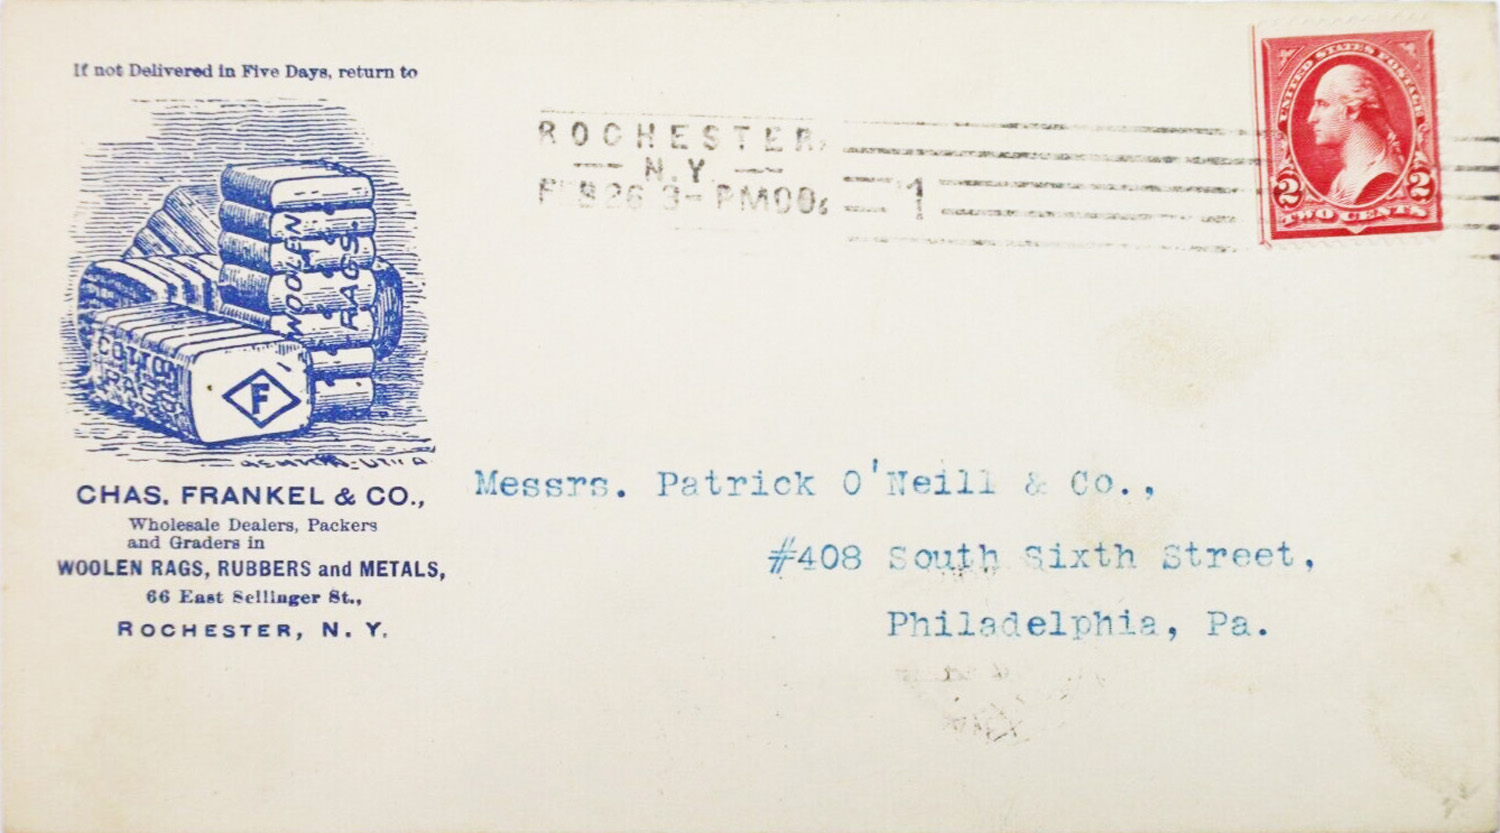 If not Delivered in Five Days, return to
WOOLEN
RAGS.
COTTON
RAGS
F
CHAS. FRANKEL & CO.,
Wholesale Dealers, Packers
and Graders in
WOOLEN RAGS, RUBBERS and METALS,
66 East Sellinger St.,
ROCHESTER, N. Y.
ROCHESTER,
N.Y.
FEB 26 3- PM 00
1
UNITED STATES POSTAGE
2 2
TWO CENTS
Messrs. Patrick O'Neill & Co.,
#408 South Sixth Street,
Philadelphia, Pa.